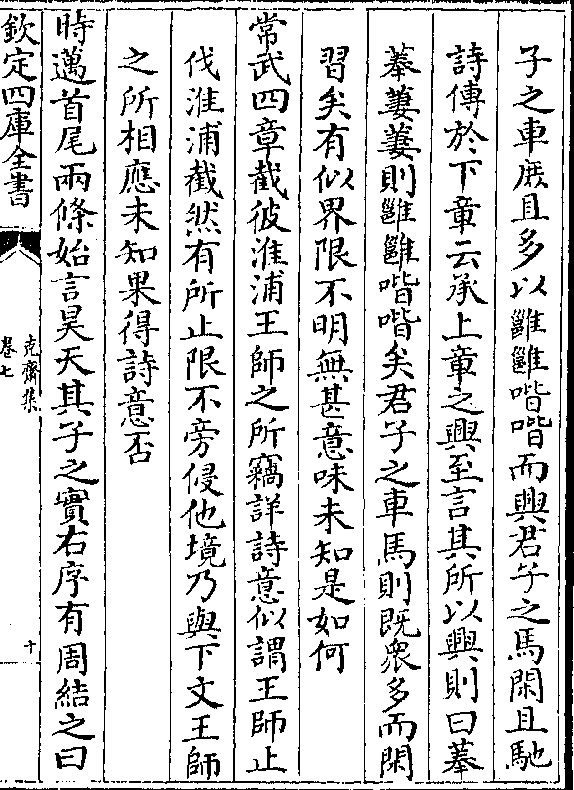 子之車庻且多以雝雝喈喈而興君子之馬閑且馳
詩傳於下章云承上章之興至言其所以興則曰菶
菶萋萋則雝雝喈喈矣君子之車馬則既衆多而閑
習矣有似界限不明無甚意味未知是如何
常武四章截彼淮浦王師之所竊詳詩意似謂王師止
伐淮浦截然有所止限不旁侵他境乃與下文王師
之所相應未知果得詩意否
時邁首尾兩條始言昊天其子之實右序有周結之曰
欽定四庫全書
克齋集
卷七
十